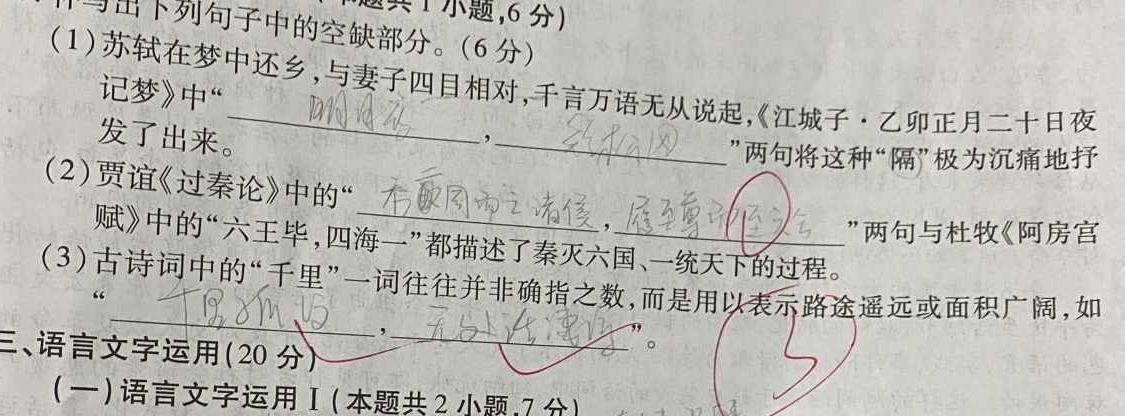 题共1小题,6分)
写出下列句子中的空缺部分。(6分)
(1)苏轼在梦中还乡,与妻子四目相对,千言万语无从说起,《江城子·乙卯正月二十日夜
记梦》中“明月夜,短松冈”两句将这种“隔”极为沉痛地抒
发了出来。
(2)贾谊《过秦论》中的“吞二周而亡诸侯,履至尊而至六合”两句与杜牧《阿房宫
赋》中的“六王毕,四海一”都描述了秦灭六国、一统天下的过程。
(3)古诗词中的“千里”一词往往并非确指之数,而是用以表示路途遥远或面积广阔,如
“千里孤坟,无处话凄凉”。
三、语言文字运用(20分)
(一)语言文字运用Ⅰ(本题共2小题,7分)